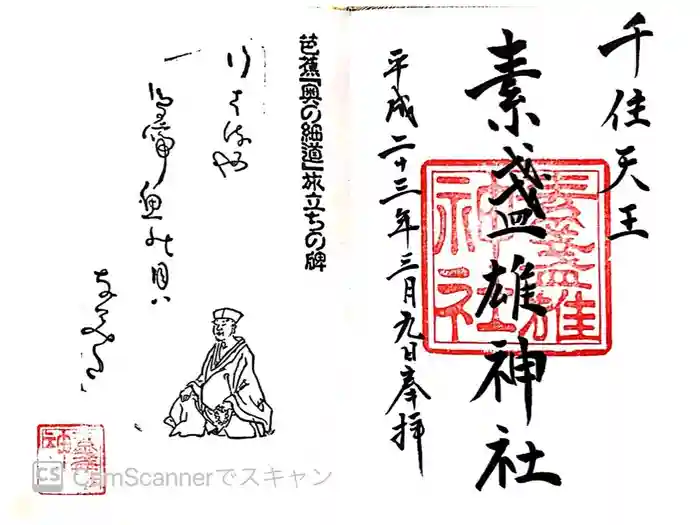 千住天王
素盞雄神社
平成二十三年三月九日奉拝
素盞雄
神社
芭蕉『奥の細道』旅立ちの碑
行はるや
鳥啼魚の目は
なみだ
CS CamScannerでスキャン